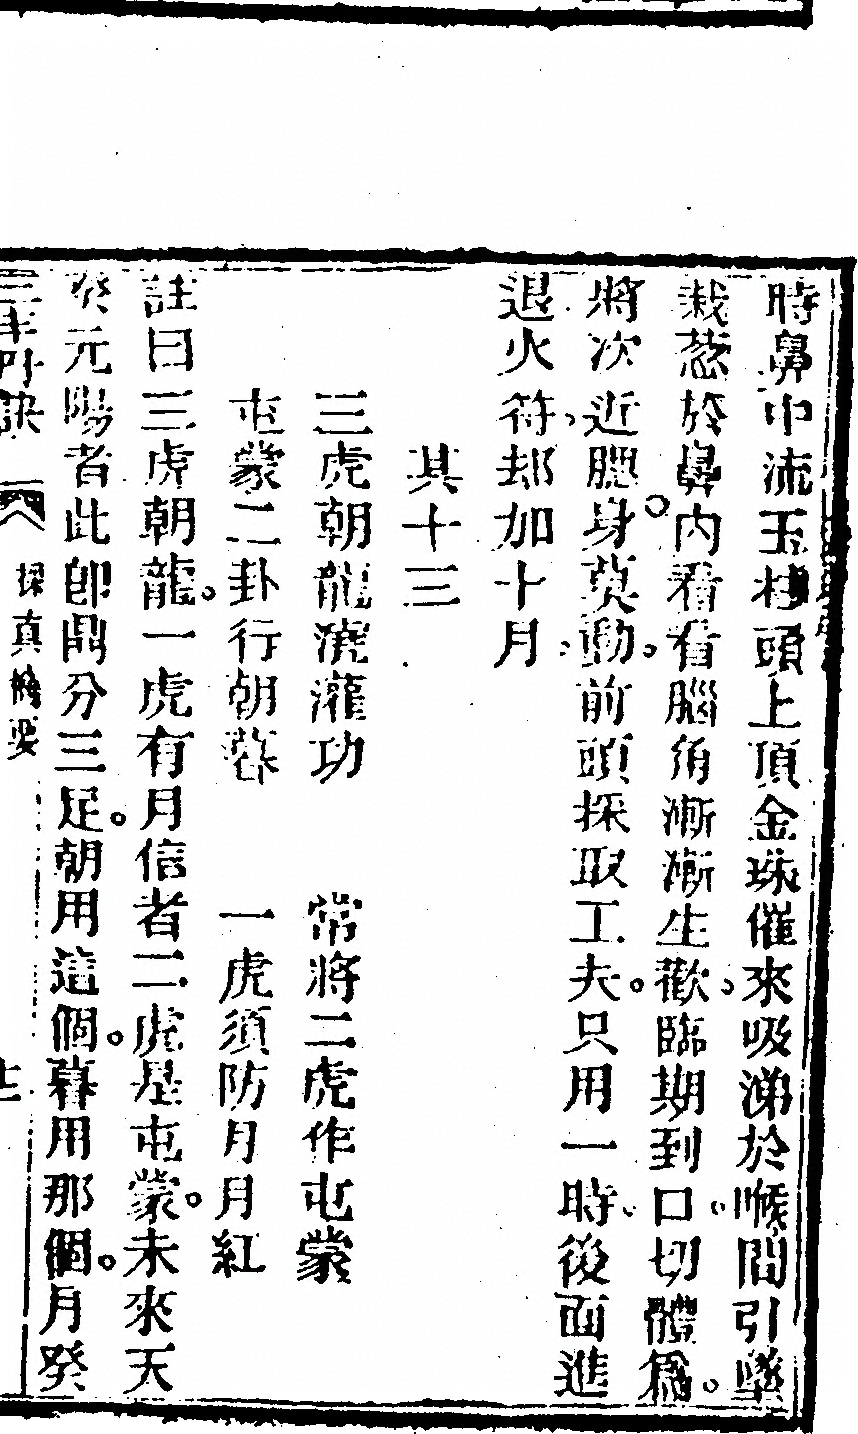 時鼻中流玉柱頭上頂金珠催來吸涕於喉間引
栽葱於鼻內看看腦角漸漸生歡臨期到口切體爲
將次近腮身莫動前頭採取工夫只用一時後面進
退火符却加十月
其十三
三虎朝龍澆灌功 常將二虎作屯蒙
屯蒙二卦行朝暮 一虎須防月月紅
註曰三虎朝龍一虎有月信者二虎是屯蒙未來天
癸元陽者此卽鼎分三足朝用這個暮用那個月癸
三丰丹訣 探真 要